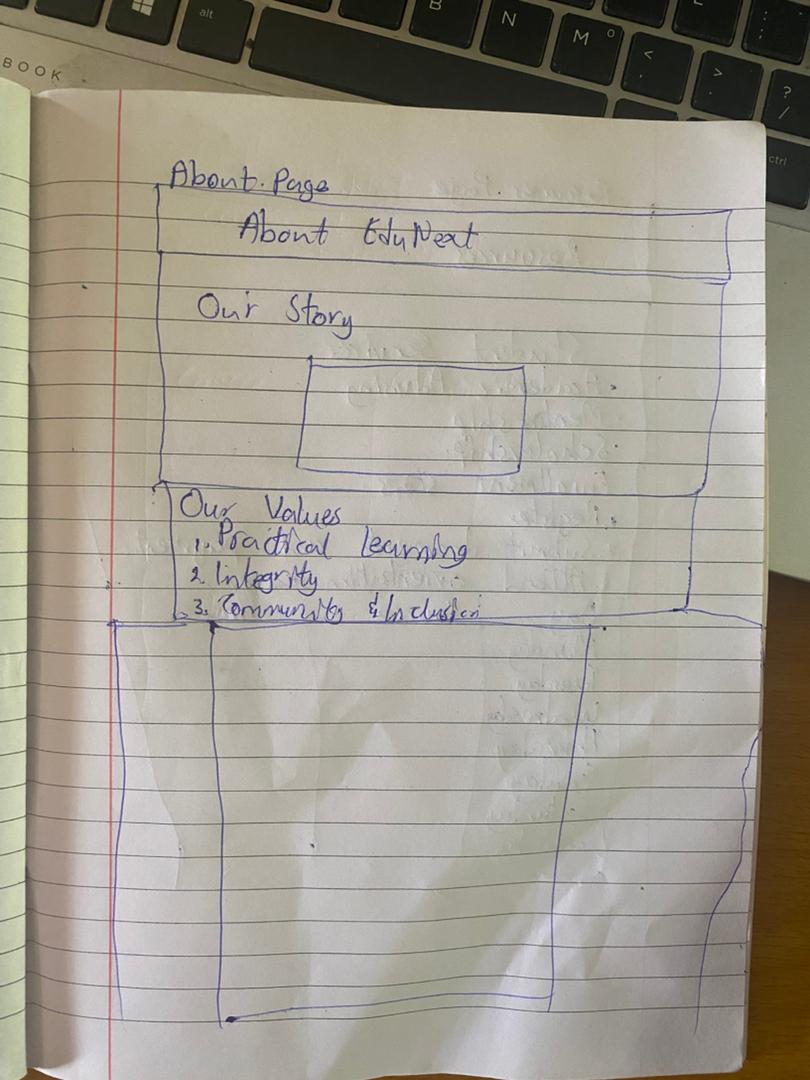 BOOK
alt
B
N
M
<
>
?
/
ctrl
About Page
About EduNext
Our Story
Our Values
1. Practical learning
2. Integrity
3. Community & Inclusion